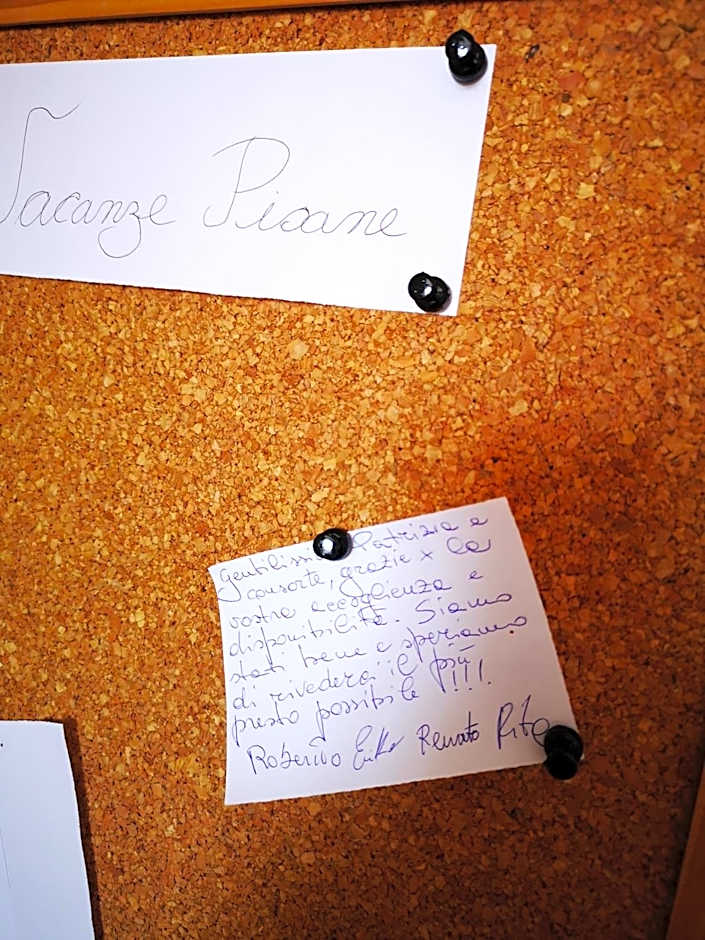 Vacanze Pisane
gentilissi Patrizia e
consorte, grazie x la
vostra accoglienza e
disponibilità. Siamo
stati bene e speriamo
di rivederci il più
presto possibile !!!
Roberto Renato Rita